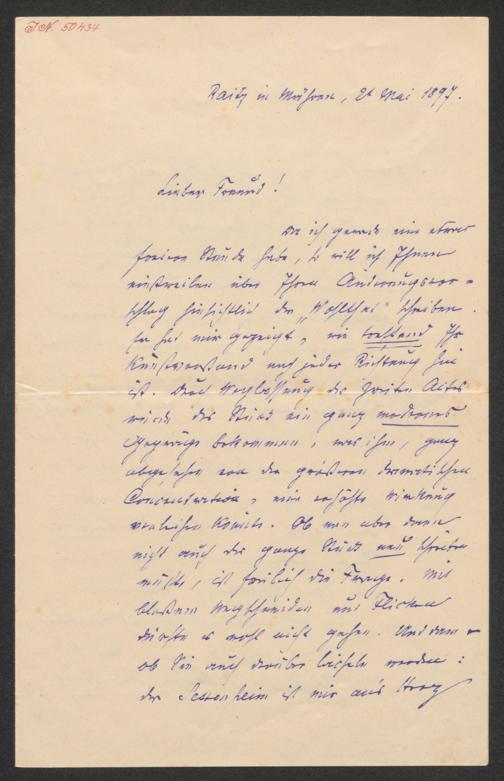 J.N. 50434
Raitz in Mähren, 21 Mai 1897.
Lieber Freund!
Da ich gerade eine etwas
freiere Stunde habe, so will ich Ihnen
einstweilen über Ihren Änderungsvor-
schlag hinsichtlich der „Wohlthat" schreiben.
Er hat mir gezeigt, wie treffend Ihr
Kunstverstand nach jeder Richtung hin
ist. Durch Weglassung des zweiten Aktes
würde das Stück ein ganz modernes
Gepräge bekommen, was ihm, ganz
abgesehen von der größeren dramatischen
Concentration, eine erhöhte Wirkung
verleihen könnte. Ob man aber dann
nicht auch das ganze Stück neu schreiben
müßte, ist freilich die Frage. Mit
bloßem Wegschneiden und Flicken
dürfte es wohl nicht gehen. Und dann –
ob Sie auch darüber lächeln werden:
der Sesenheim ist mir an's Herz